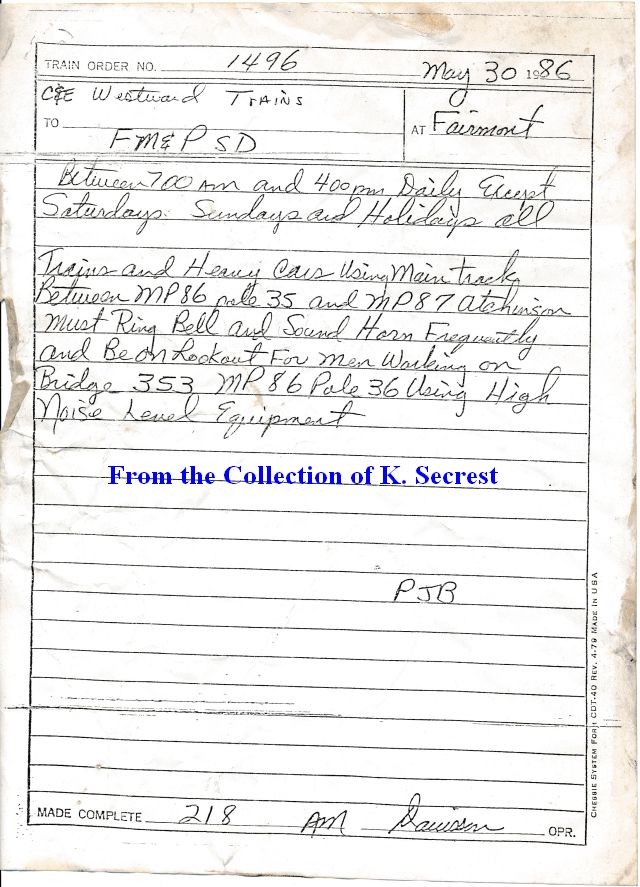 TRAIN ORDER NO. 1496 May 30 1986
C&E Westward Trains
TO FM&P SD AT Fairmont
Between 700 AM and 400 PM Daily Except
Saturdays. Sundays and Holidays all
Trains and Heavy Cars Using Main track
Between MP 86 pole 35 and MP 87 Atchinson
Must Ring Bell and Sound Horn Frequently
and Be on Lookout For men Working on
Bridge 353 MP 86 Pole 36 Using High
Noise Level Equipment
From the Collection of K. Secrest
PJB
MADE COMPLETE 218 AM Dawson OPR.
CHESSIE SYSTEM FORM CDT-40 REV. 4-79 MADE IN USA